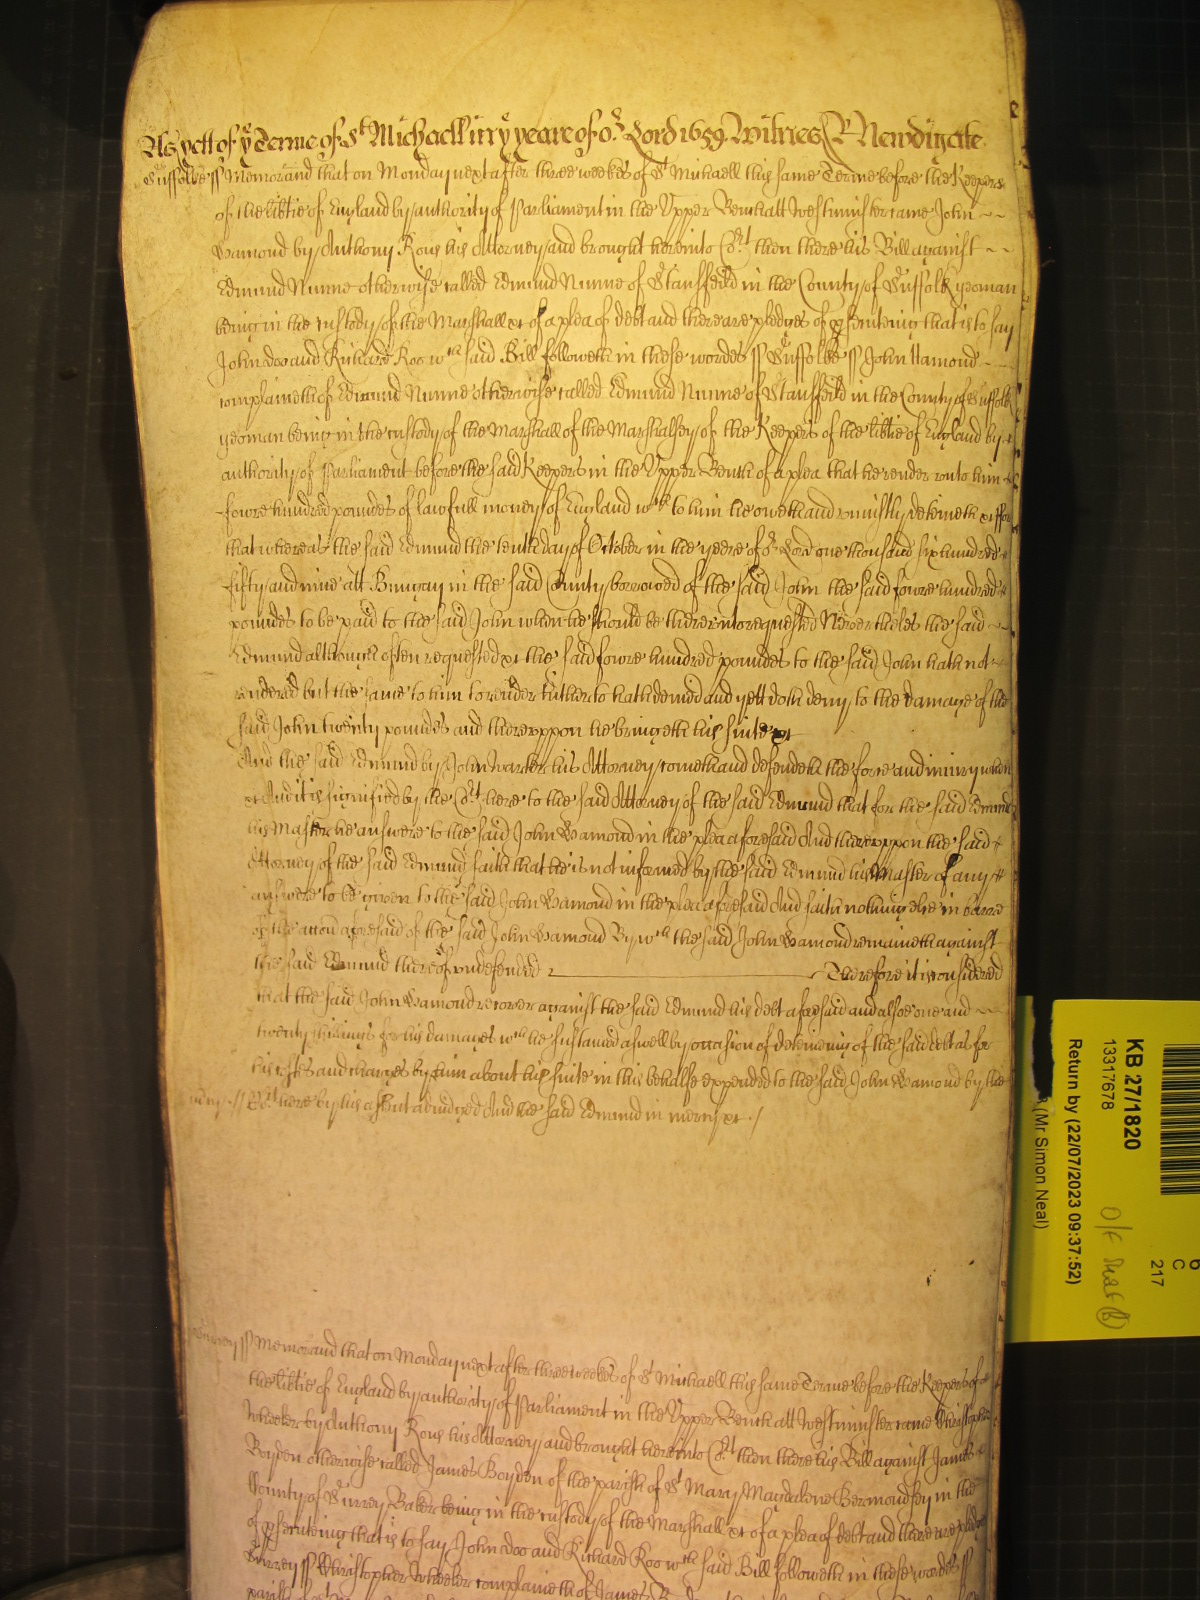 As yett of yᵉ Terme of Sᵗ Michaell in yᵉ yeare of oʳ Lord 1659. Witnes R Newdigate
Suffolke ss Memorand that on Monday next after three weekes of Sᵗ Michaell this same Terme before the Keepers
of the libtie of England by authority of Parliament in the Upper Bench att Westminster came John
Hamond by Anthony Rous his Attorney and brought here into Coʳt then there his Bill against
Edmund Nunne otherwise called Edmund Nunne of Stansfeild in the County of Suffolk yeoman
being in the custody of the Marshall &c of a plea of debt and there are pledges of psecuteing that is to say
John doo and Richard Roo wᶜʰ said Bill followeth in these wordes ss Suffolke ss John Hamond
complaineth of Edmund Nunne otherwise called Edmund Nunne of Stansfeild in the County of Suffolk
yeoman being in the custody of the Marshall of the Marshalsey of the Keepers of the libtie of England by
authority of Parliament before the said Keepers in the Upper Bench of a plea that he render unto him
fowre hundred poundes of lawfull money of England wᶜʰ to him he oweth and uniustly deteineth &c ffor
that whereas the said Edmund the tenth day of October in the yeere of oʳ Lord one thousand six hundred
fifty and nine att Bungay in the said County borrowed of the said John the said fowre hundred
poundes to be paid to the said John when he should be thereunto requested Nevertheles the said
Edmund although often requested &c the said fowre hundred poundes to the said John hath not
rendered but the same to him to render hitherto hath denied and yett doth deny to the damage of the
said John twenty poundes and thereuppon he bringeth his suite &c
And the said Edmund by John Warker his Attorney cometh and defendeth the force and iniury when
&c And it is signified by the Coʳt here to the said Attorney of the said Edmund that for the said Edmund
his Master he answere to the said John Hamond in the plea aforesaid And thereuppon the said
Attorney of the said Edmund saith that he is not informed by the said Edmund his Master of any
answere to be given to the said John Hamond in the plea aforesaid And saith nothing else in barre
of the accon aforesaid of the said John Hamond By wᶜʰ the said John Hamond remaineth against
the said Edmund thereof undefended Therefore it is considered
that the said John Hamond recover against the said Edmund his debt aforesaid and alsoe one and
twenty shillings for his damages wᶜʰ he sustained aswell by occasion of deteineing of the said debt as for
his costes and charges by him about his suite in this behalfe expended to the said John Hamond by the
Coʳt here by his assent adiudged And the said Edmund in mercy &c
Surrey ss Memorand that on Monday next after three weekes of Sᵗ Michaell this same Terme before the Keepers of
the libtie of England by authority of Parliament in the Upper Bench att Westminster came Christopher
Wheeler by Anthony Rous his Attorney and brought here into Coʳt then there his Bill against James
Boyden otherwise called James Boyden of the parish of Sᵗ Mary Magdalene Bermondsey in the
County of Surrey Baker being in the custody of the Marshall &c of a plea of debt and there are pledges
of psecuteing that is to say John doo and Richard Roo wᶜʰ said Bill followeth in these wordes ss
Surrey ss Christopher Wheeler complaineth of James
KB 27/1820
13317678
Return by (22/07/2023 09:37:52)
(Mr Simon Neal)
6
C
217